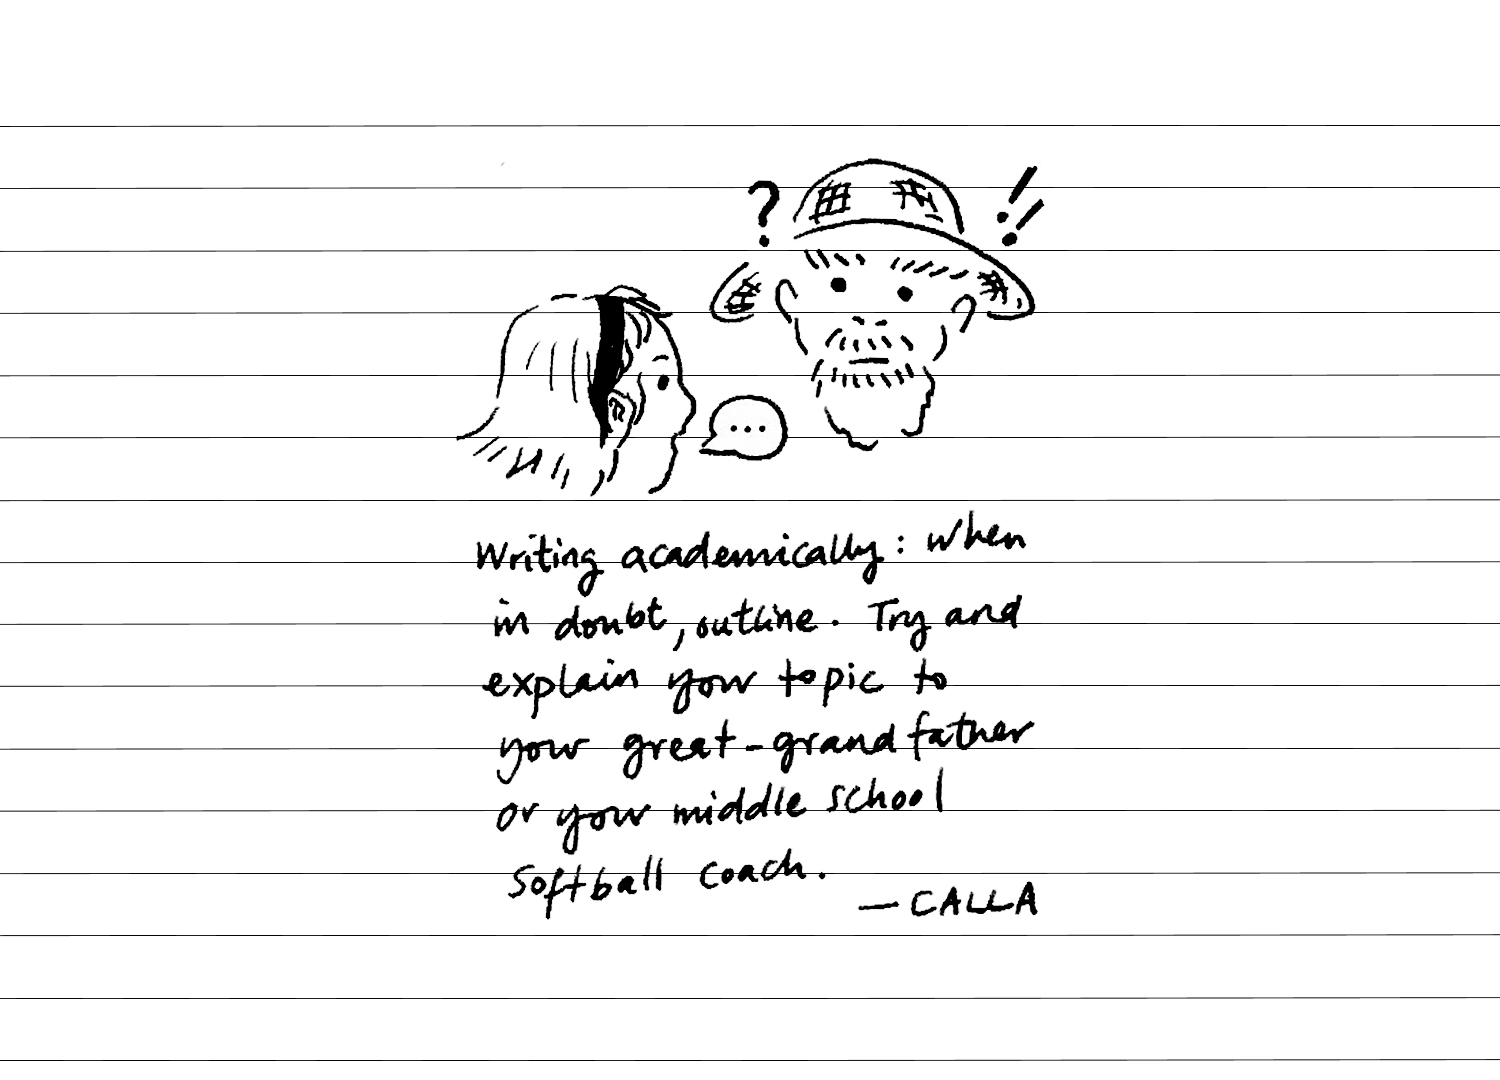 ?
!!
...
Writing academically: when
in doubt, outline. Try and
explain your topic to
your great-grandfather
or your middle school
softball coach.
— CALLA